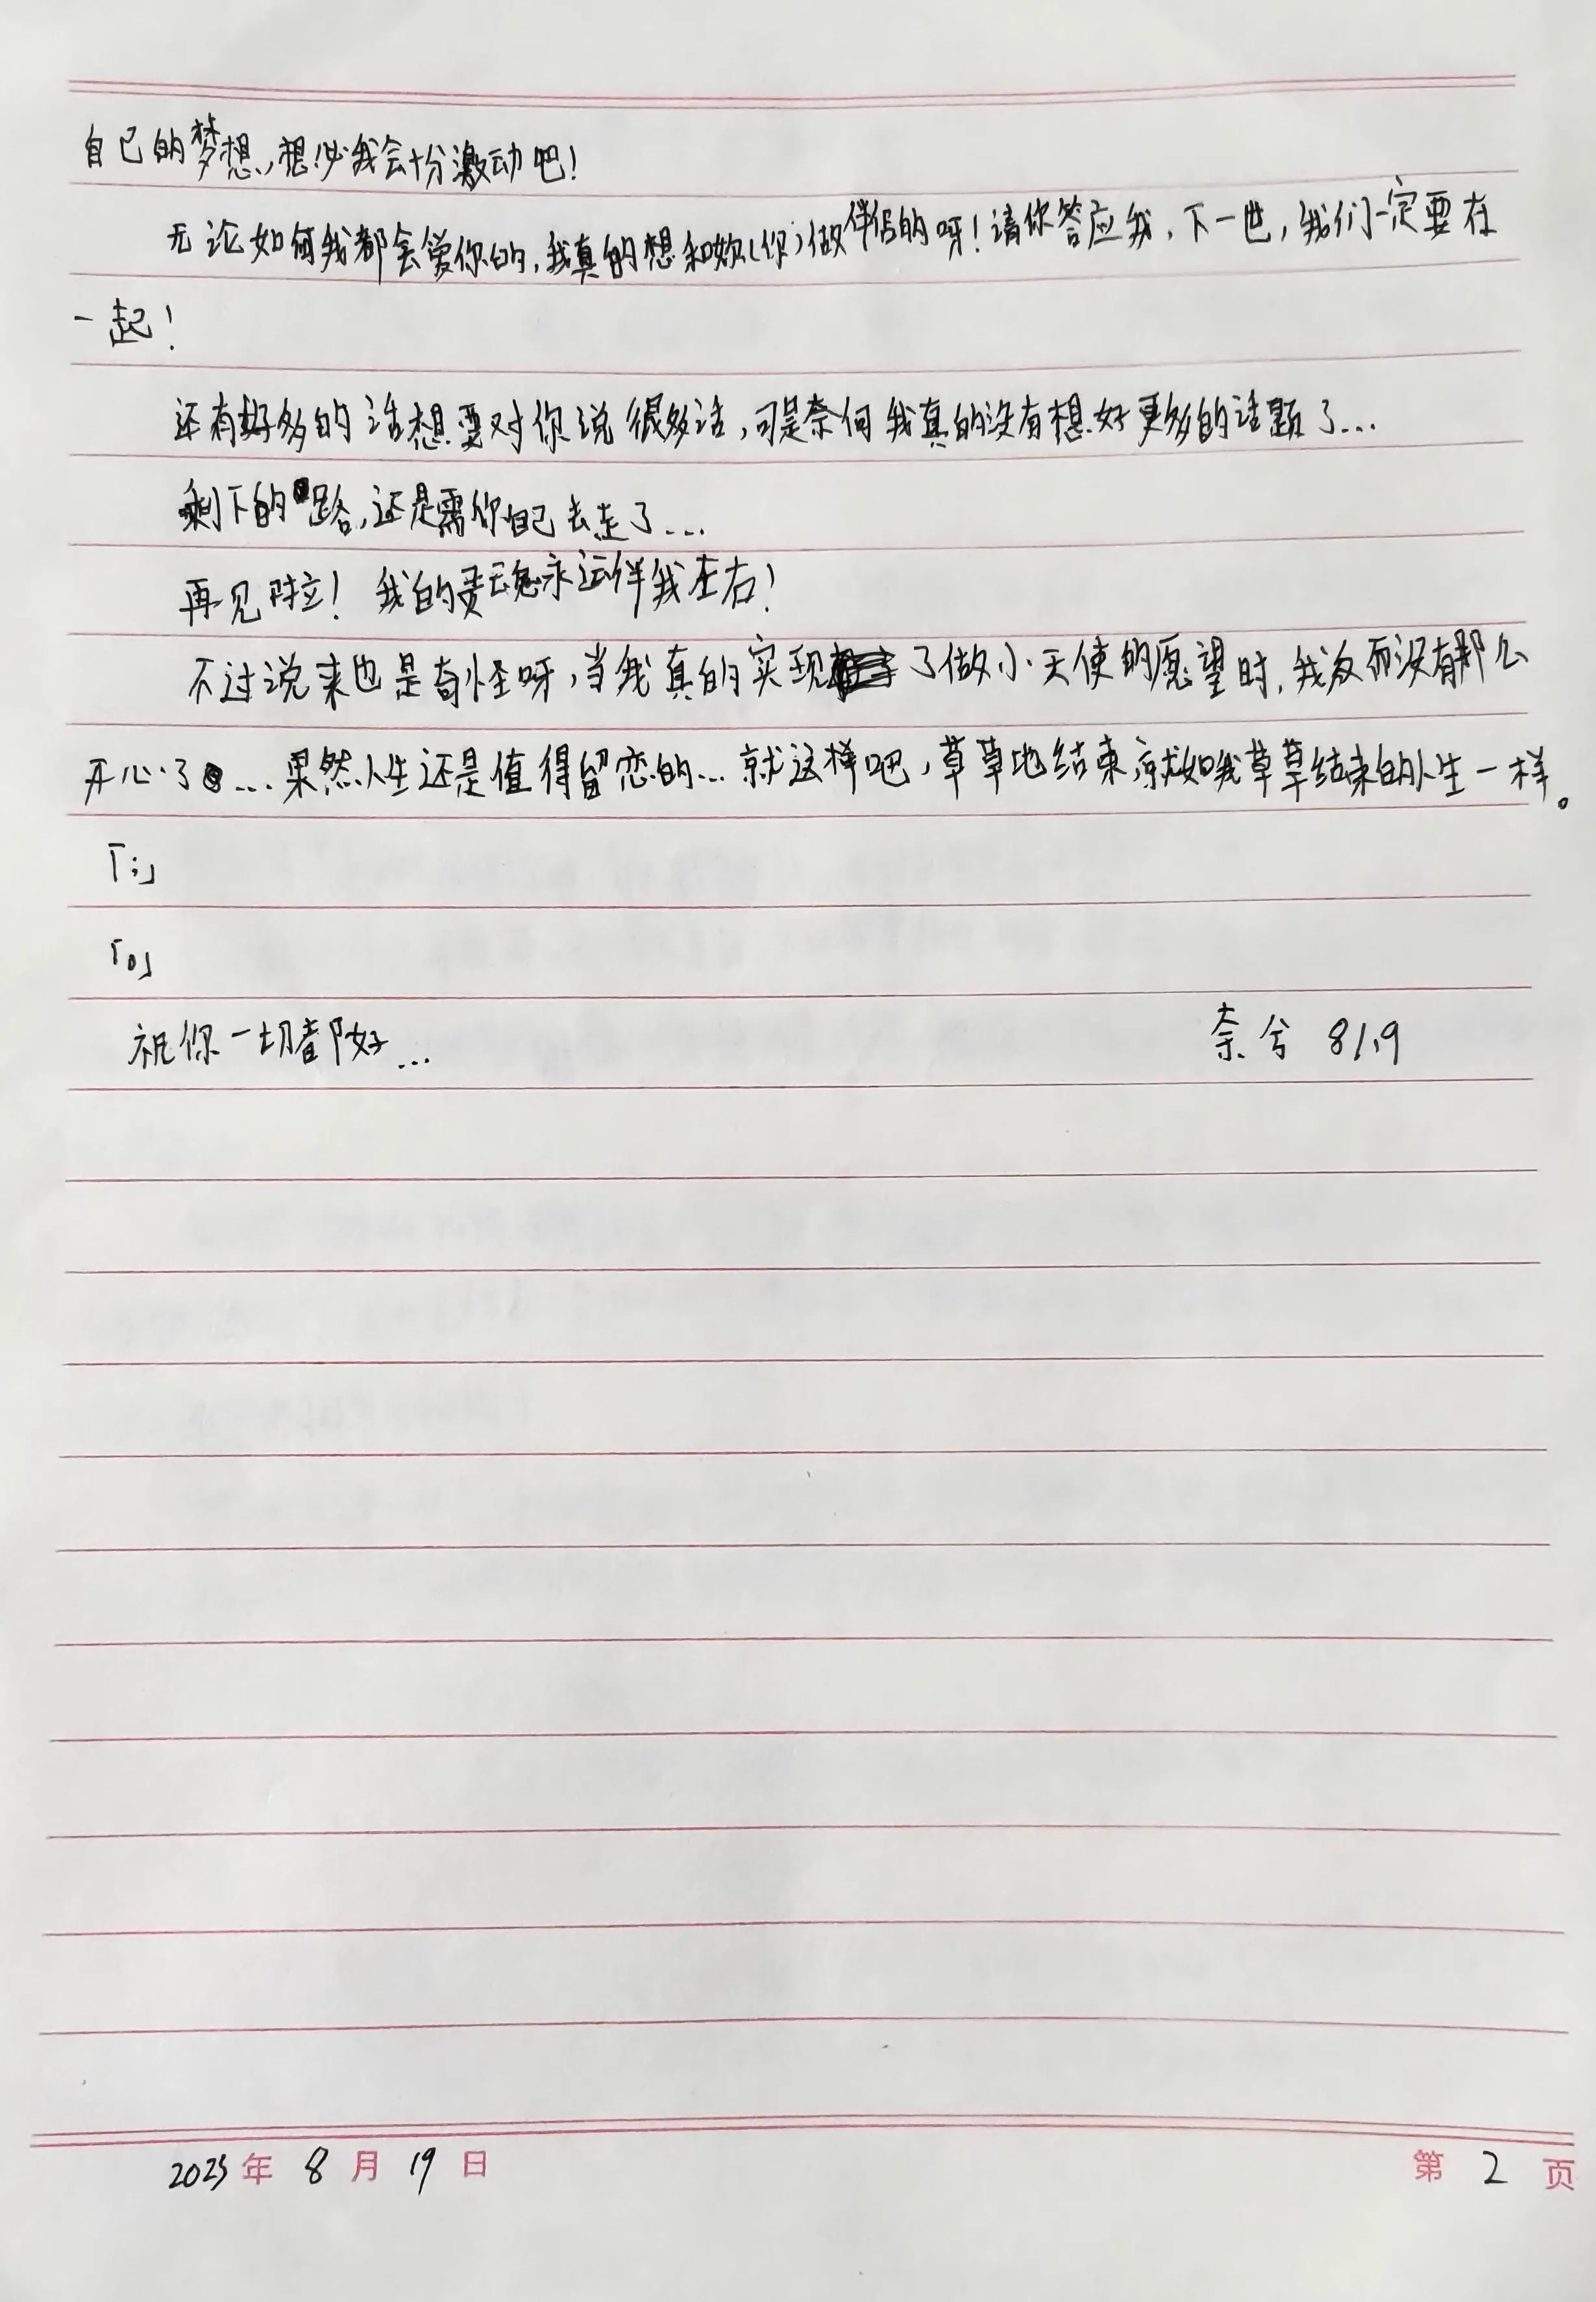 自己的梦想,想必我会十分激动吧!
无论如何我都会爱你的,我真的想和妳(你)做伴侣的呀!请你答应我,下一世,我们一定要在
一起!
还有好多的话想要对你说很多话,可是奈何我真的没有想好更多的话题了...
剩下的路,还是需你自己去走了...
再见啦!我的灵魂永远伴我左右!
不过说来也是奇怪呀,当我真的实现了做小天使的愿望时,我反而没有那么
开心了...果然人生还是值得留恋的...就这样吧,草草地结束,就如我草草结束的人生一样。
「;」
「。」
祝你一切都好... 奈兮 8/19
2023年8月19日 第2页